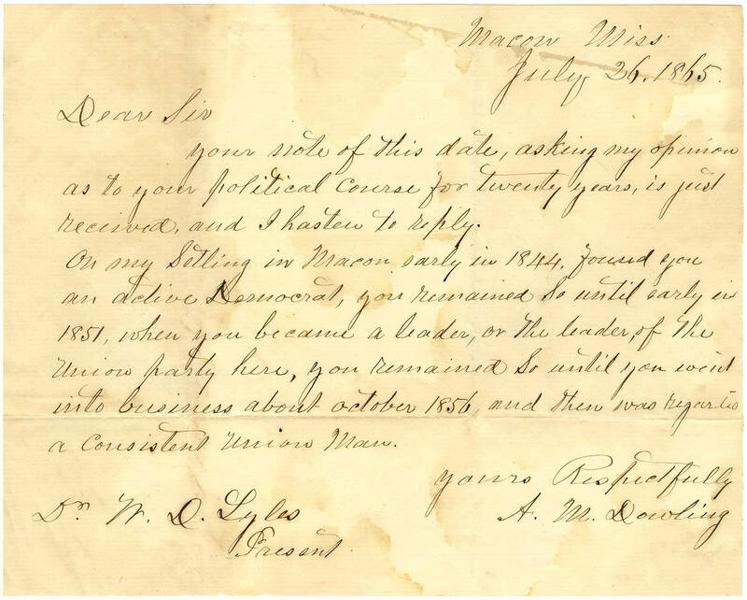 Macon Miss
July 26. 1865.
Dear Sir
your note of this date, asking my opinion
as to your political course for twenty years, is just
received, and I hasten to reply.
On my Setling in Macon early in 1844, found you
an active Democrat, you remained So until early in
1851, when you became a leader, or the leader, of the
Union party here, you remained So until you went
into business about october 1856, and then was
a consistent Union Man.
yours Respectfully
A. M. Dowling
Dr W. D. Lyles
Present.